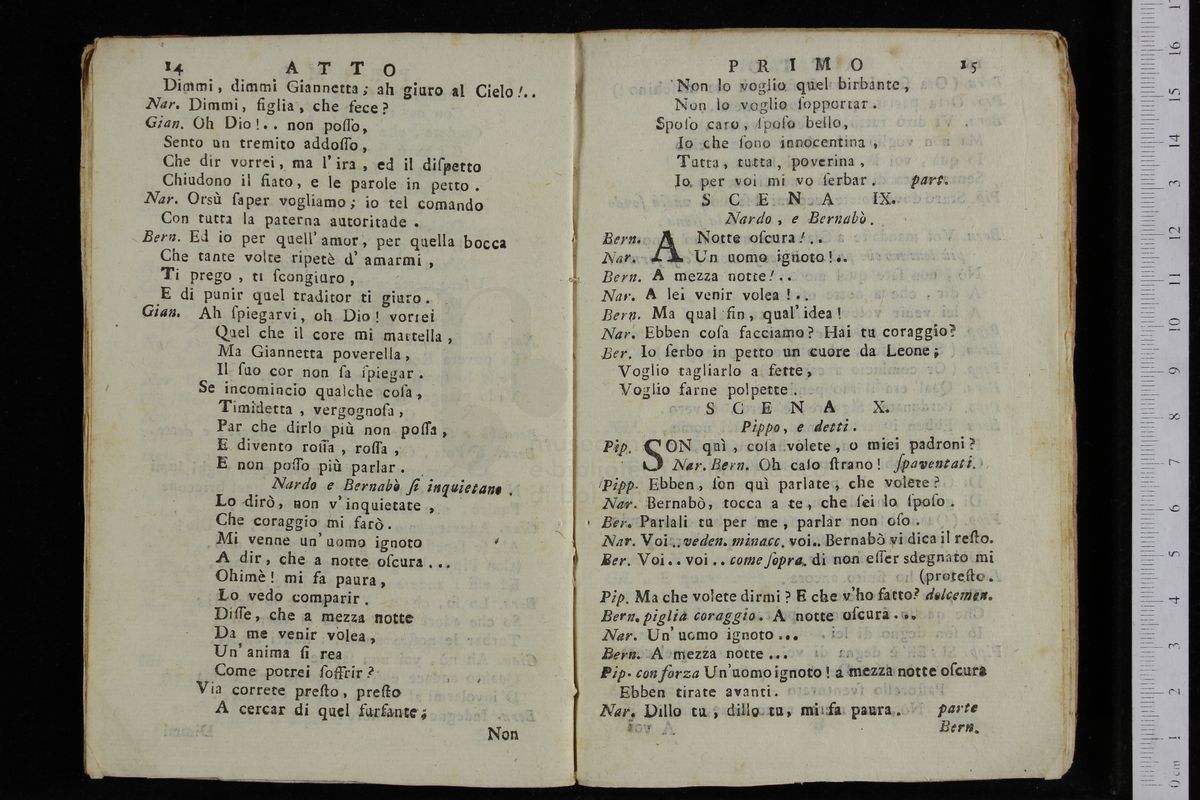 14 ATTO
Dimmi, dimmi Giannetta; ah giuro al Cielo!..
Nar. Dimmi, figlia, che fece?
Gian. Oh Dio!.. non poſſo,
Sento un tremito addoſſo,
Che dir vorrei, ma l'ira, ed il diſpetto
Chiudono il fiato, e le parole in petto.
Nar. Orsù ſaper vogliamo; io tel comando
Con tutta la paterna autoritade.
Bern. Ed io per quell'amor, per quella bocca
Che tante volte ripetè d'amarmi,
Ti prego, ti ſcongiuro,
E di punir quel traditor ti giuro.
Gian. Ah ſpiegarvi, oh Dio! vorrei
Quel che il core mi martella,
Ma Giannetta poverella,
Il ſuo cor non ſa ſpiegar.
Se incomincio qualche coſa,
Timidetta, vergognoſa,
Par che dirlo più non poſſa,
E divento roſſa, roſſa,
E non poſſo più parlar.
Nardo e Bernabò ſi inquietano.
Lo dirò, non v'inquietate,
Che coraggio mi farò.
Mi venne un'uomo ignoto
A dir, che a notte oſcura...
Ohimè! mi fa paura,
Lo vedo comparir.
Diſſe, che a mezza notte
Da me venir volea,
Un'anima ſi rea
Come potrei ſoffrir?
Via correte preſto, preſto
A cercar di quel furfante;
Non
PRIMO 15
Non lo voglio quel birbante,
Non lo voglio ſopportar.
Spoſo caro, ſpoſo bello,
Io che ſono innocentina,
Tutta, tutta, poverina,
Io per voi mi vo ſerbar. part.
SCENA IX.
Nardo, e Bernabò.
Bern. A Notte oſcura!..
Nar. Un uomo ignoto!..
Bern. A mezza notte!..
Nar. A lei venir volea!..
Bern. Ma qual fin, qual'idea!
Nar. Ebben coſa facciamo? Hai tu coraggio?
Ber. Io ſerbo in petto un cuore da Leone;
Voglio tagliarlo a fette,
Voglio farne polpette.
SCENA X.
Pippo, e detti.
Pip. SON quì, coſa volete, o miei padroni?
Nar. Bern. Oh caſo ſtrano! ſpaventati.
Pipp. Ebben, ſon quì parlate, che volete?
Nar. Bernabò, tocca a te, che ſei lo ſpoſo.
Ber. Parlali tu per me, parlar non oſo.
Nar. Voi..veden. minacc. voi.. Bernabò vi dica il reſto.
Ber. Voi..voi..come ſopra. di non eſſer sdegnato mi
(proteſto.
Pip. Ma che volete dirmi? E che v'ho fatto? dolcemen.
Bern. piglia coraggio. A notte oſcura...
Nar. Un'uomo ignoto...
Bern. A mezza notte...
Pip. con forza Un'uomo ignoto! a mezza notte oſcura
Ebben tirate avanti.
Nar. Dillo tu, dillo tu, mi fa paura. parte
Bern.